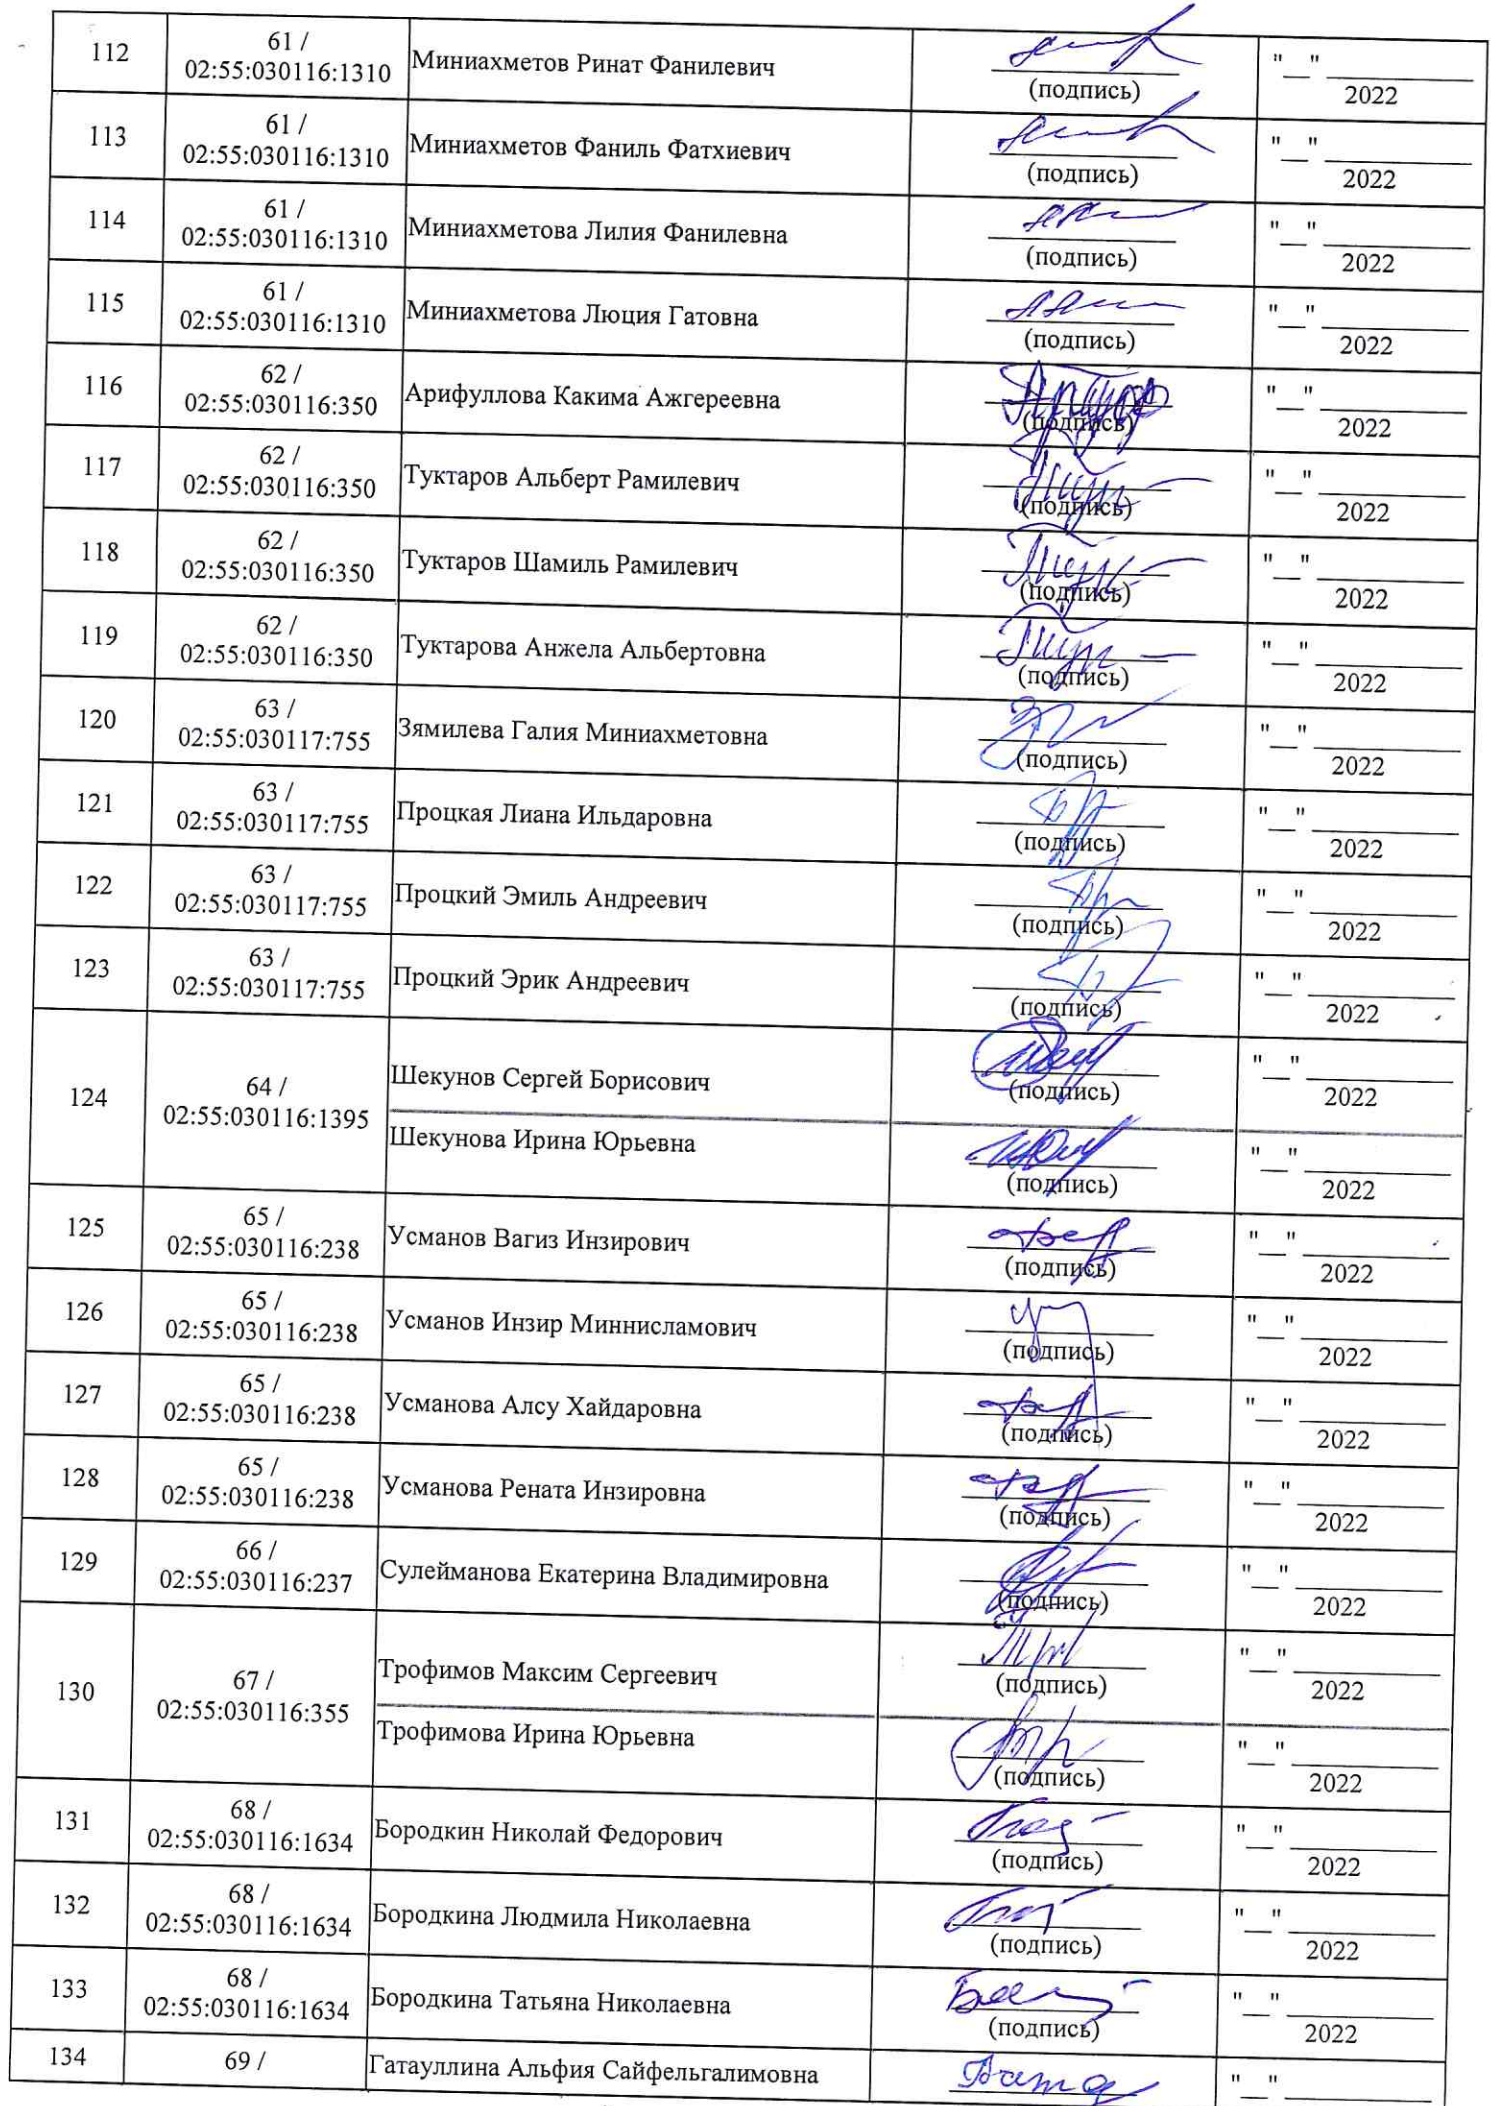 112
61 /
02:55:030116:1310
Миниахметов Ринат Фанилевич
(подпись)
"__" ____________
2022
113
61 /
02:55:030116:1310
Миниахметов Фаниль Фатхиевич
(подпись)
"__" ____________
2022
114
61 /
02:55:030116:1310
Миниахметова Лилия Фанилевна
(подпись)
"__" ____________
2022
115
61 /
02:55:030116:1310
Миниахметова Люция Гатовна
(подпись)
"__" ____________
2022
116
62 /
02:55:030116:350
Арифуллова Какима Ажгереевна
(подпись)
"__" ____________
2022
117
62 /
02:55:030116:350
Туктаров Альберт Рамилевич
(подпись)
"__" ____________
2022
118
62 /
02:55:030116:350
Туктаров Шамиль Рамилевич
(подпись)
"__" ____________
2022
119
62 /
02:55:030116:350
Туктарова Анжела Альбертовна
(подпись)
"__" ____________
2022
120
63 /
02:55:030117:755
Зямилева Галия Миниахметовна
(подпись)
"__" ____________
2022
121
63 /
02:55:030117:755
Процкая Лиана Ильдаровна
(подпись)
"__" ____________
2022
122
63 /
02:55:030117:755
Процкий Эмиль Андреевич
(подпись)
"__" ____________
2022
123
63 /
02:55:030117:755
Процкий Эрик Андреевич
(подпись)
"__" ____________
2022
124
64 /
02:55:030116:1395
Шекунов Сергей Борисович
(подпись)
"__" ____________
2022
Шекунова Ирина Юрьевна
(подпись)
"__" ____________
2022
125
65 /
02:55:030116:238
Усманов Вагиз Инзирович
(подпись)
"__" ____________
2022
126
65 /
02:55:030116:238
Усманов Инзир Миннисламович
(подпись)
"__" ____________
2022
127
65 /
02:55:030116:238
Усманова Алсу Хайдаровна
(подпись)
"__" ____________
2022
128
65 /
02:55:030116:238
Усманова Рената Инзировна
(подпись)
"__" ____________
2022
129
66 /
02:55:030116:237
Сулейманова Екатерина Владимировна
(подпись)
"__" ____________
2022
130
67 /
02:55:030116:355
Трофимов Максим Сергеевич
(подпись)
"__" ____________
2022
Трофимова Ирина Юрьевна
(подпись)
"__" ____________
2022
131
68 /
02:55:030116:1634
Бородкин Николай Федорович
(подпись)
"__" ____________
2022
132
68 /
02:55:030116:1634
Бородкина Людмила Николаевна
(подпись)
"__" ____________
2022
133
68 /
02:55:030116:1634
Бородкина Татьяна Николаевна
(подпись)
"__" ____________
2022
134
69 /
Гатауллина Альфия Сайфельгалимовна
"__" ____________